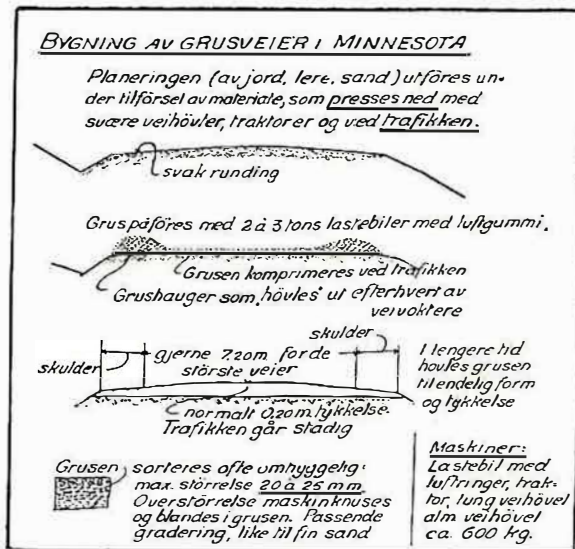 BYGNING AV GRUSVEIER I MINNESOTA
Planeringen (av jord, lere, sand) utföres un-
der tilförsel av materiale, som presses ned med
svære veihövler, traktorer og ved trafikken.
svak runding
Grus påföres med 2 à 3 tons lastebiler med luftgummi.
Grusen komprimeres ved trafikken
Grushauger som "hövles" ut efterhvert av
veivoktere
skulder
skulder
gjerne 7.20m for de
störste veier
I lengere tid
hovles grusen
til endelig form
og tykkelse
normalt 0.20m tykkelse.
Trafikken går stadig
Grusen sorteres ofte omhyggelig:
max. störrelse 20 à 25 mm
Overstörrelse maskinknuses
og blandes i grusen. Passende
gradering, like til fin sand
Maskiner:
Lastebil med
luftringer, trak-
tor, tung veihövel
alm. veihövel
ca. 600 kg.